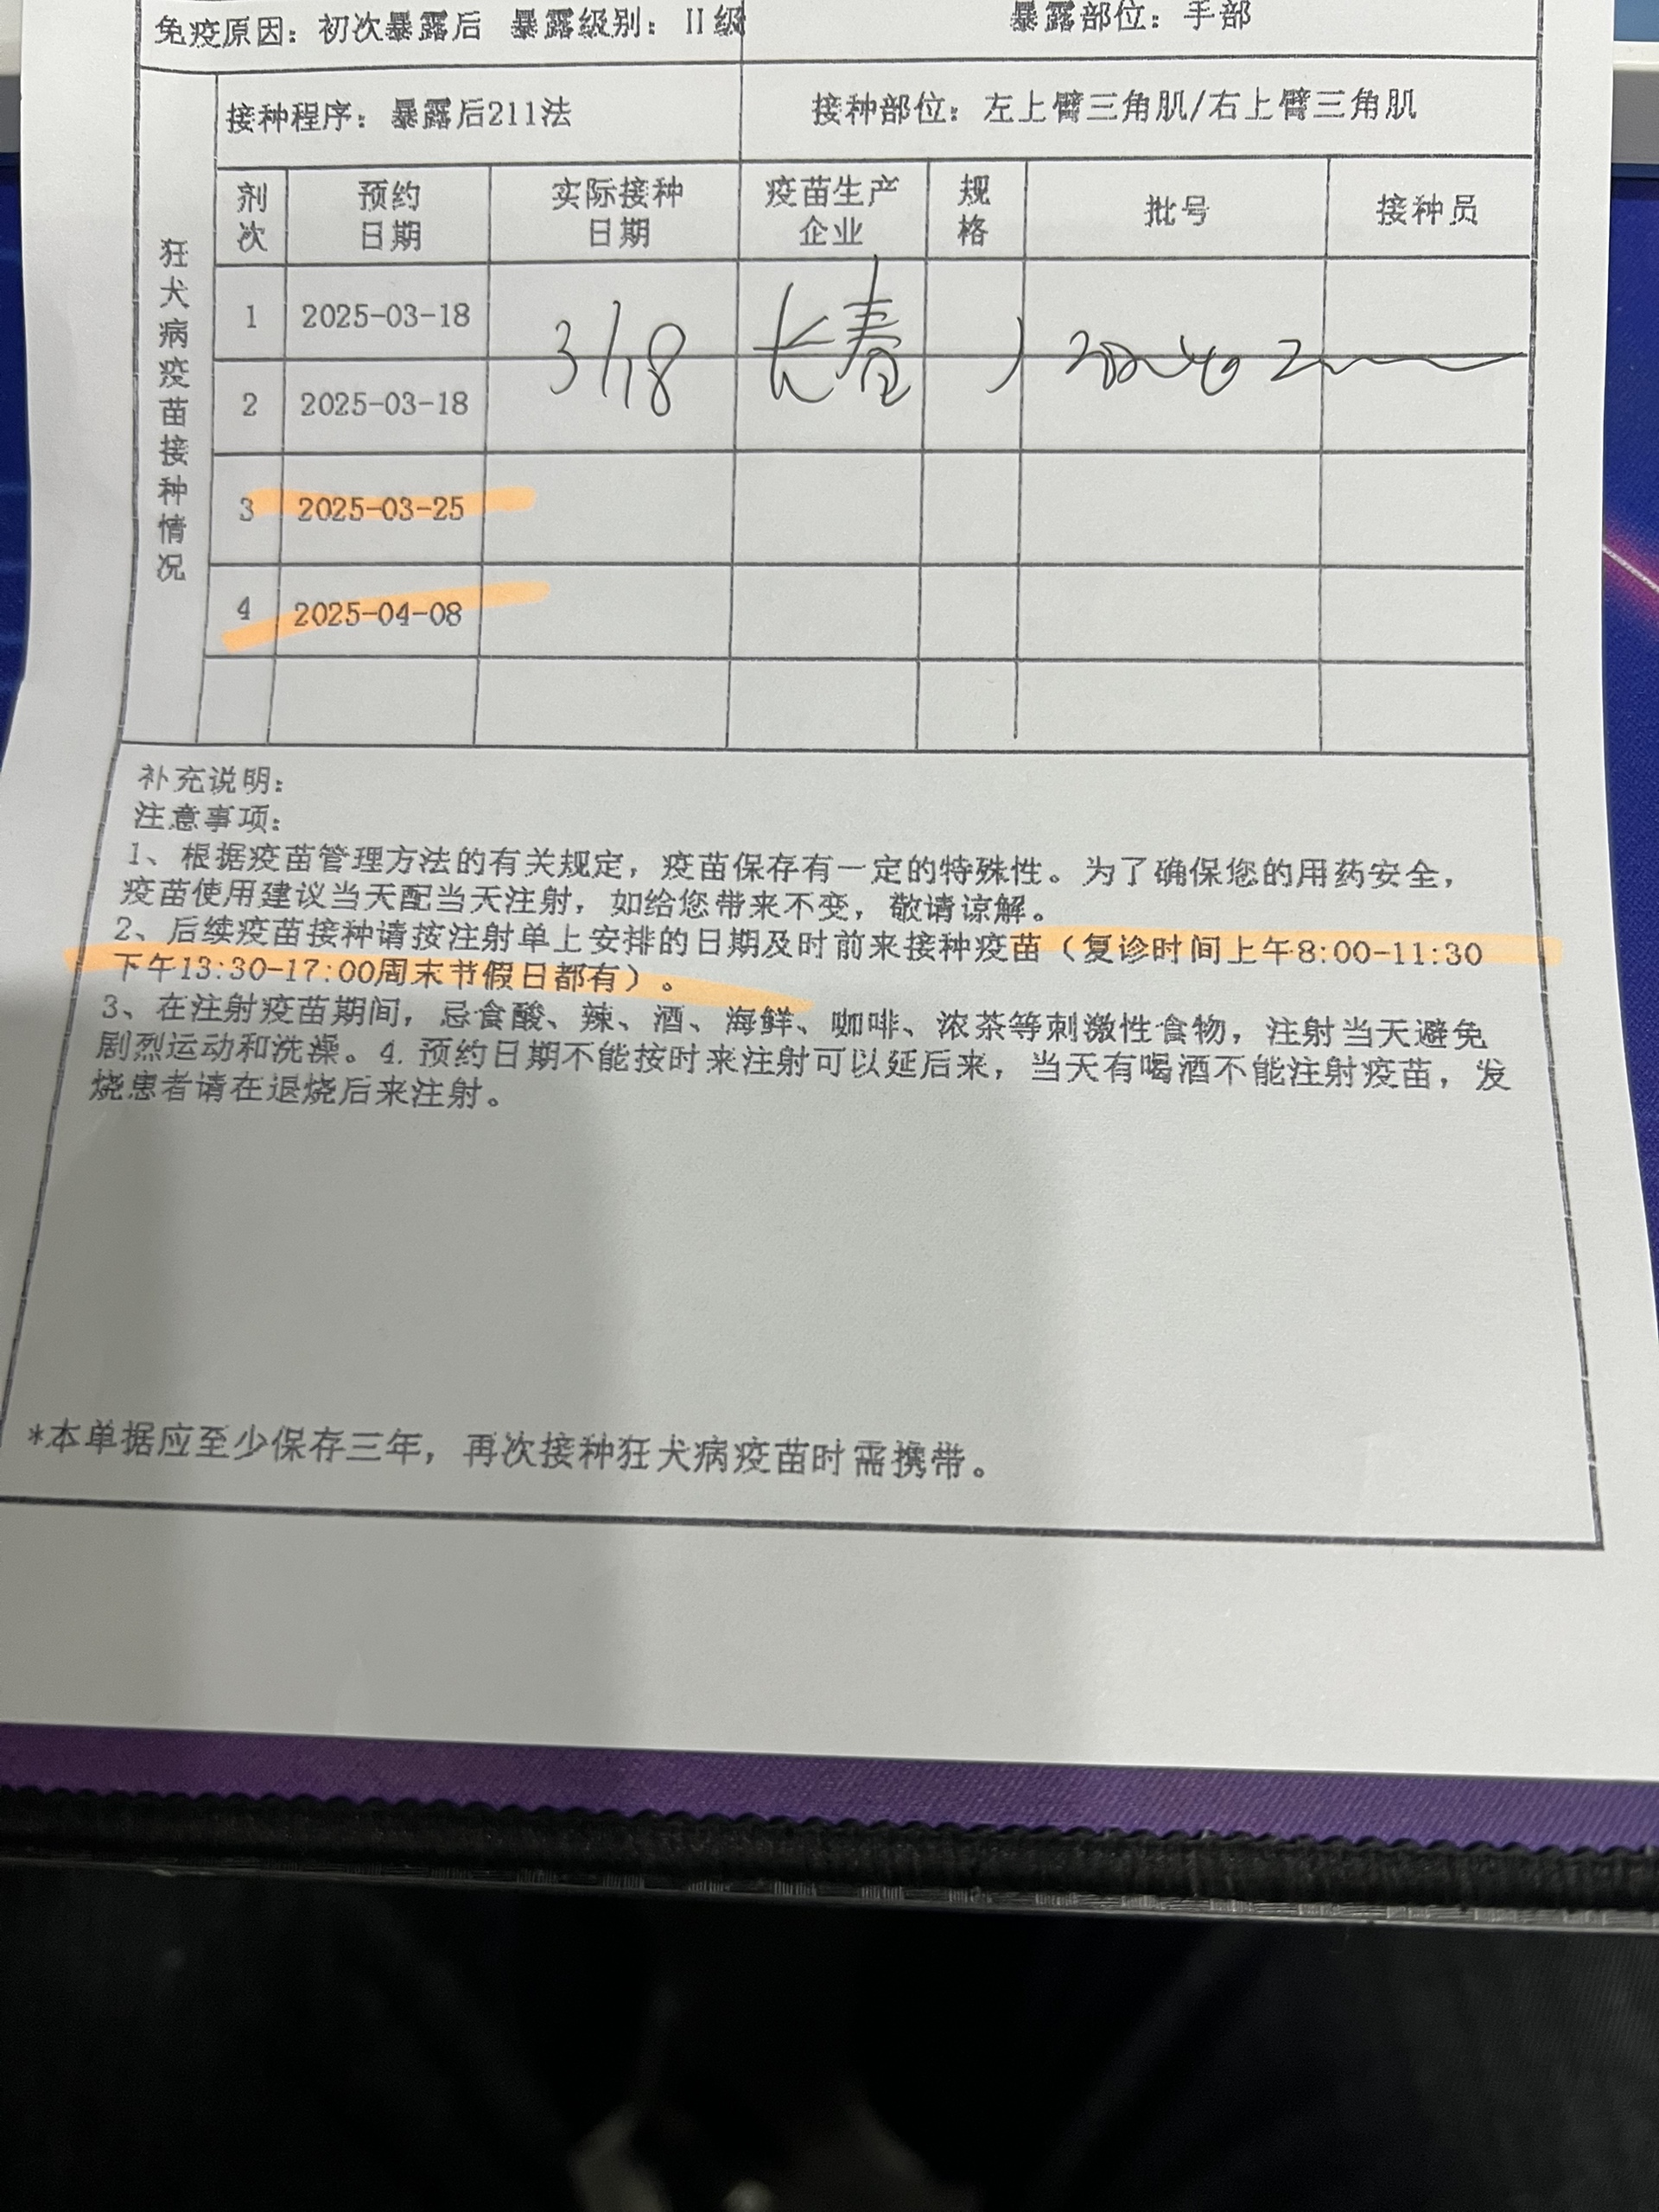 免疫原因：初次暴露后 暴露级别：II级 暴露部位：手部
接种程序：暴露后211法 接种部位：左上臂三角肌/右上臂三角肌
狂犬病疫苗接种情况
剂次 预约日期 实际接种日期 疫苗生产企业 规格 批号 接种员
1 2025-03-18
3/18 长春
2 2025-03-18
3 2025-03-25
4 2025-04-08
补充说明：
注意事项：
1、根据疫苗管理方法的有关规定，疫苗保存有一定的特殊性。为了确保您的用药安全，
疫苗使用建议当天配当天注射，如给您带来不变，敬请谅解。
2、后续疫苗接种请按注射单上安排的日期及时前来接种疫苗（复诊时间上午8:00-11:30
下午13:30-17:00周末节假日都有）。
3、在注射疫苗期间，忌食酸、辣、酒、海鲜、咖啡、浓茶等刺激性食物，注射当天避免
剧烈运动和洗澡。4.预约日期不能按时来注射可以延后来，当天有喝酒不能注射疫苗，发
烧患者请在退烧后来注射。
*本单据应至少保存三年，再次接种狂犬病疫苗时需携带。